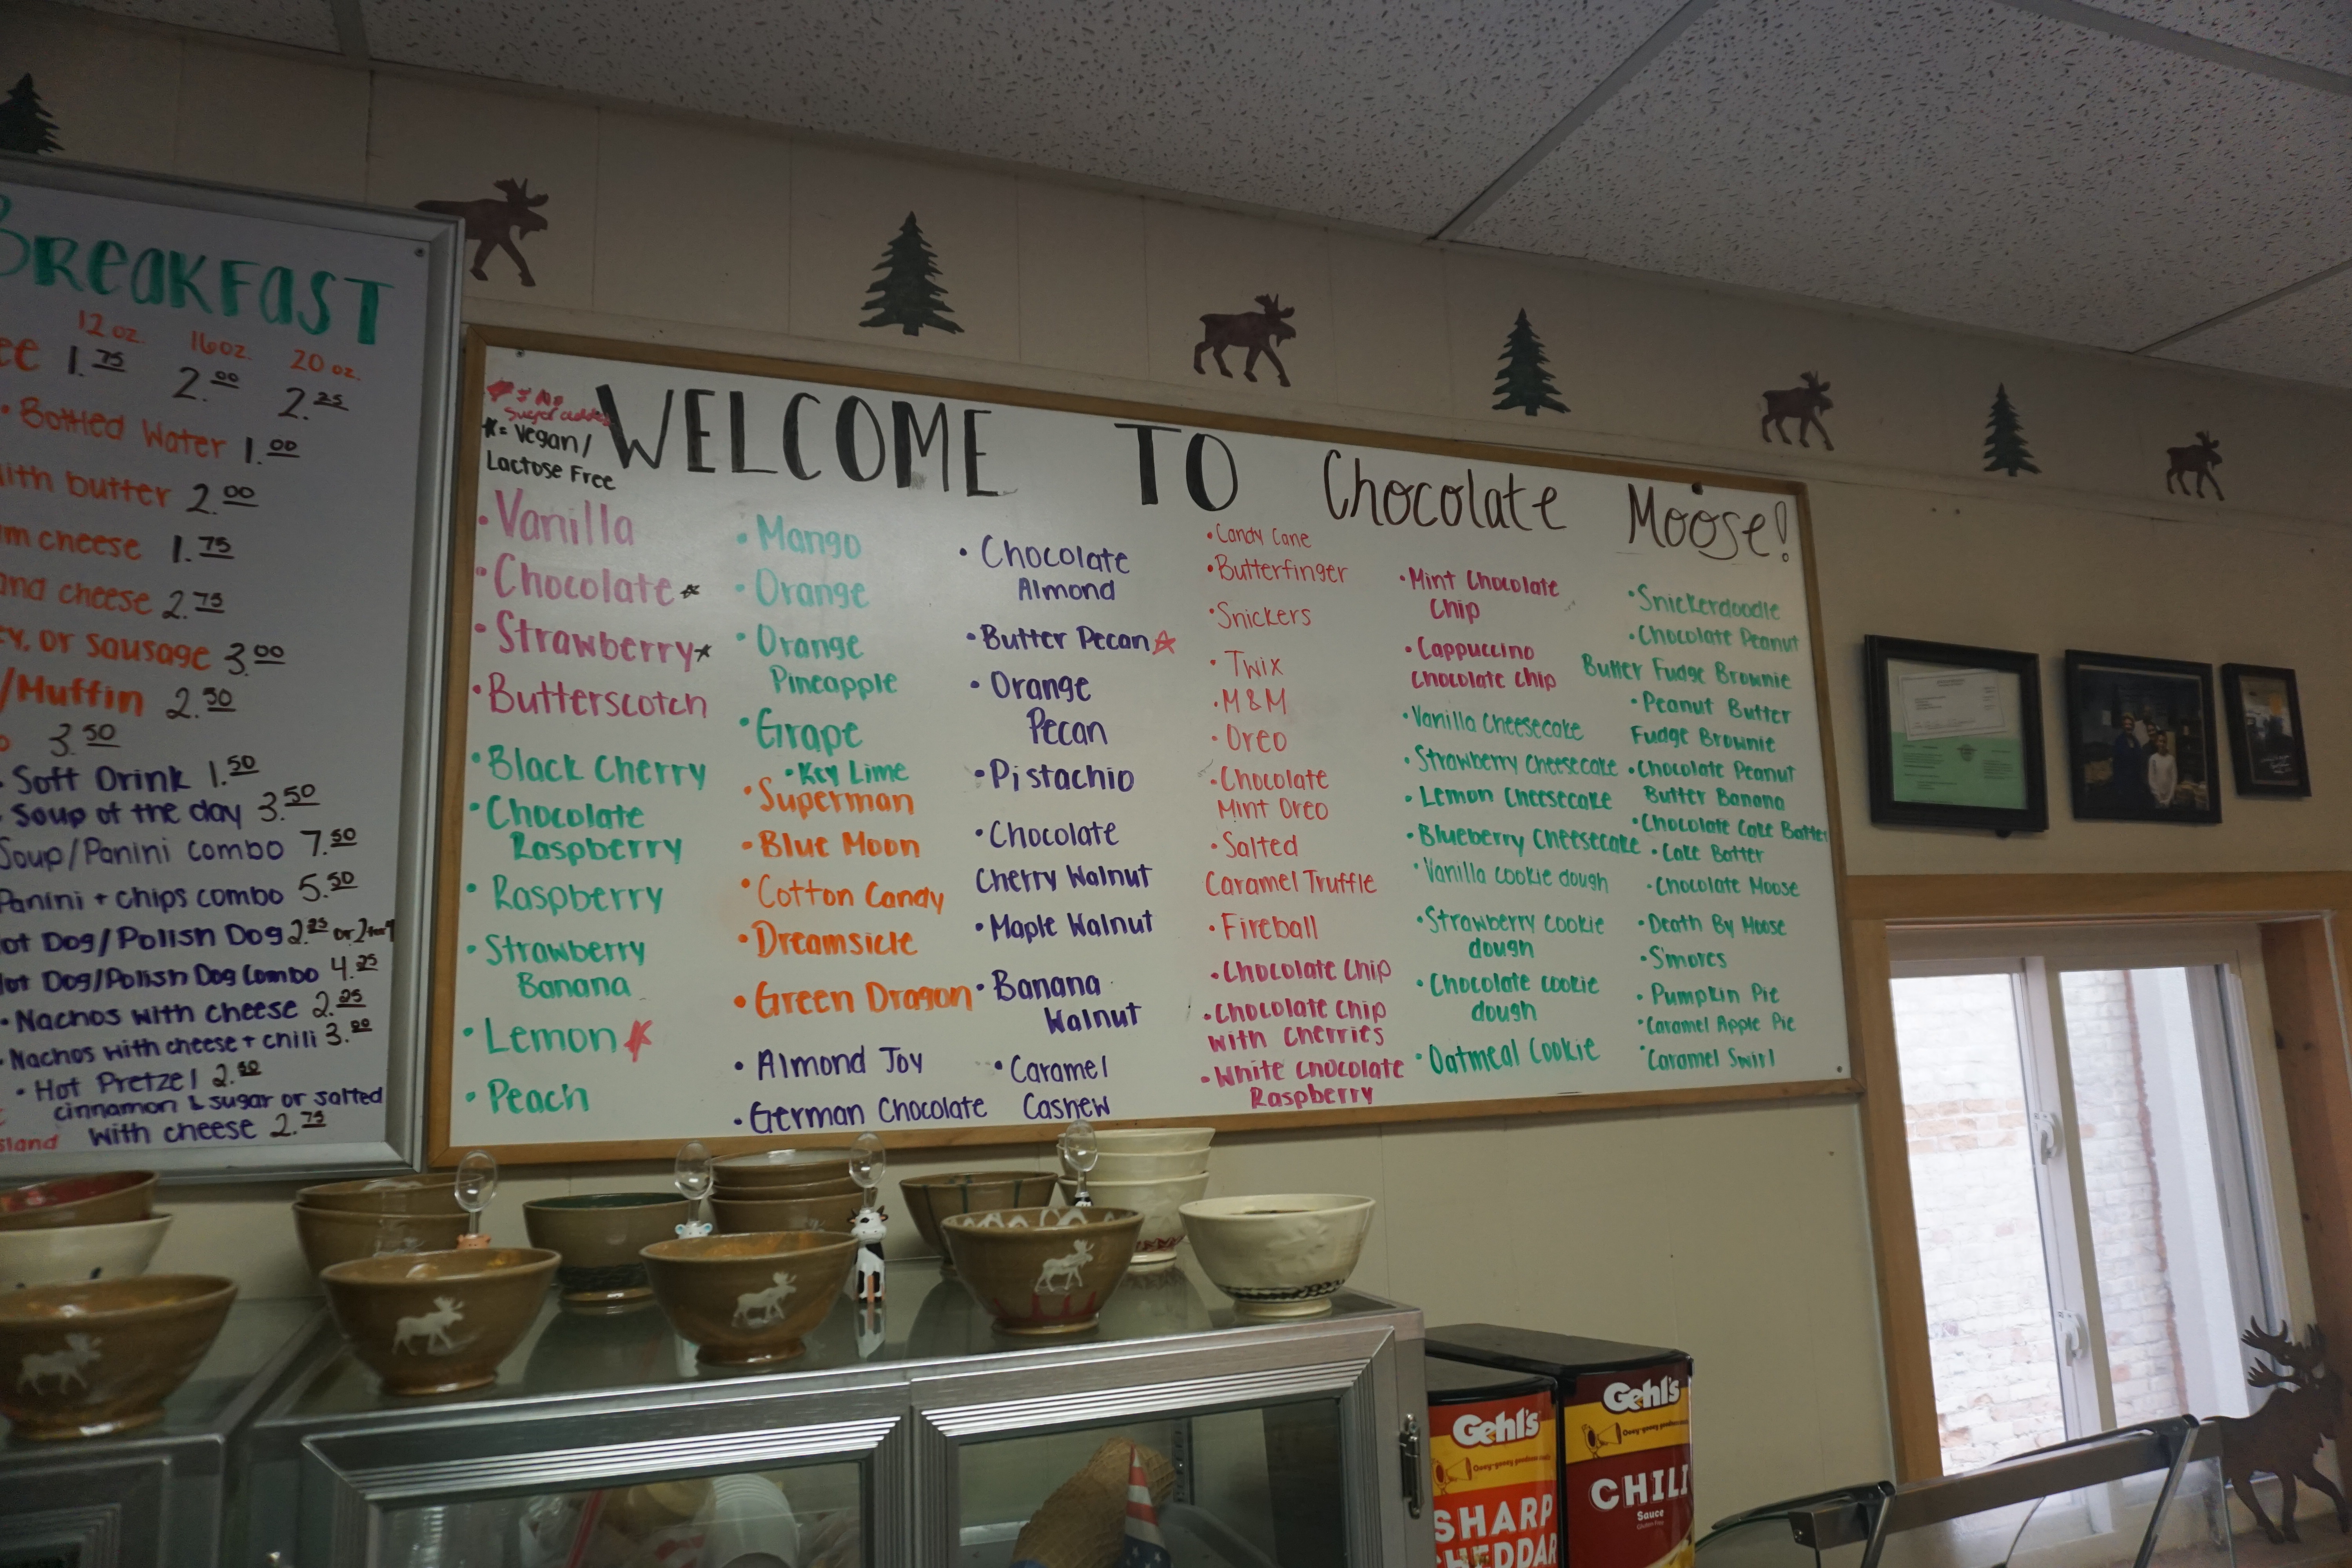 BREAKFAST
12 oz. 16oz. 20 oz.
1.75 2.00 2.25
• Bottled Water 1.00
with butter 2.00
cheese 1.75
and cheese 2.75
or sausage 3.00
/Muffin 2.50
3.50
• Soft Drink 1.50
• Soup of the day 3.50
Soup/Panini combo 7.50
Panini + chips combo 5.50
Hot Dog/Polish Dog 2.25 or
Hot Dog/Polish Dog Combo 4.25
• Nachos with cheese 2.25
• Nachos with cheese + chili 3.00
• Hot Pretzel 2.50
cinnamon & sugar or salted
with cheese 2.75
= No
Sugar added
*= Vegan/
Lactose Free
WELCOME TO Chocolate Moose!
• Vanilla
• Chocolate *
• Strawberry *
• Butterscotch
• Black Cherry
• Chocolate
Raspberry
• Raspberry
• Strawberry
Banana
• Lemon *
• Peach
• Mango
• Orange
• Orange
Pineapple
• Grape
• Key Lime
• Superman
• Blue Moon
• Cotton Candy
• Dreamsicle
• Green Dragon
• Almond Joy
• German Chocolate
• Chocolate
Almond
• Butter Pecan ☆
• Orange
Pecan
• Pistachio
• Chocolate
Cherry Walnut
• Maple Walnut
• Banana
Walnut
• Caramel
Cashew
• Candy Cane
• Butterfinger
• Snickers
• Twix
• M&M
• Oreo
• Chocolate
Mint Oreo
• Salted
Caramel Truffle
• Fireball
• Chocolate Chip
• Chocolate Chip
with Cherries
• White Chocolate
Raspberry
• Mint Chocolate
Chip
• Cappuccino
Chocolate Chip
• Vanilla Cheesecake
• Strawberry Cheesecake
• Lemon Cheesecake
• Blueberry Cheesecake
• Vanilla cookie dough
• Strawberry cookie
dough
• Chocolate cookie
dough
• Oatmeal Cookie
• Snickerdoodle
• Chocolate Peanut
Butter Fudge Brownie
• Peanut Butter
Fudge Brownie
• Chocolate Peanut
Butter Banana
• Chocolate Cake Batter
• Cake Batter
• Chocolate Moose
• Death By Moose
• S'mores
• Pumpkin Pie
• Caramel Apple Pie
• Caramel Swirl
Gehl's
SHARP
CHEDDAR
Gehl's
CHILI
Sauce